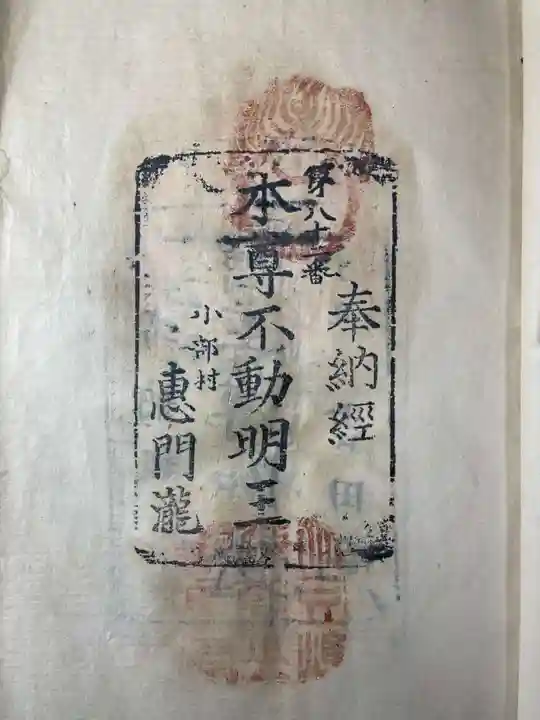 奉納經
第八十一番
本尊不動明王
小部村
惠門瀧